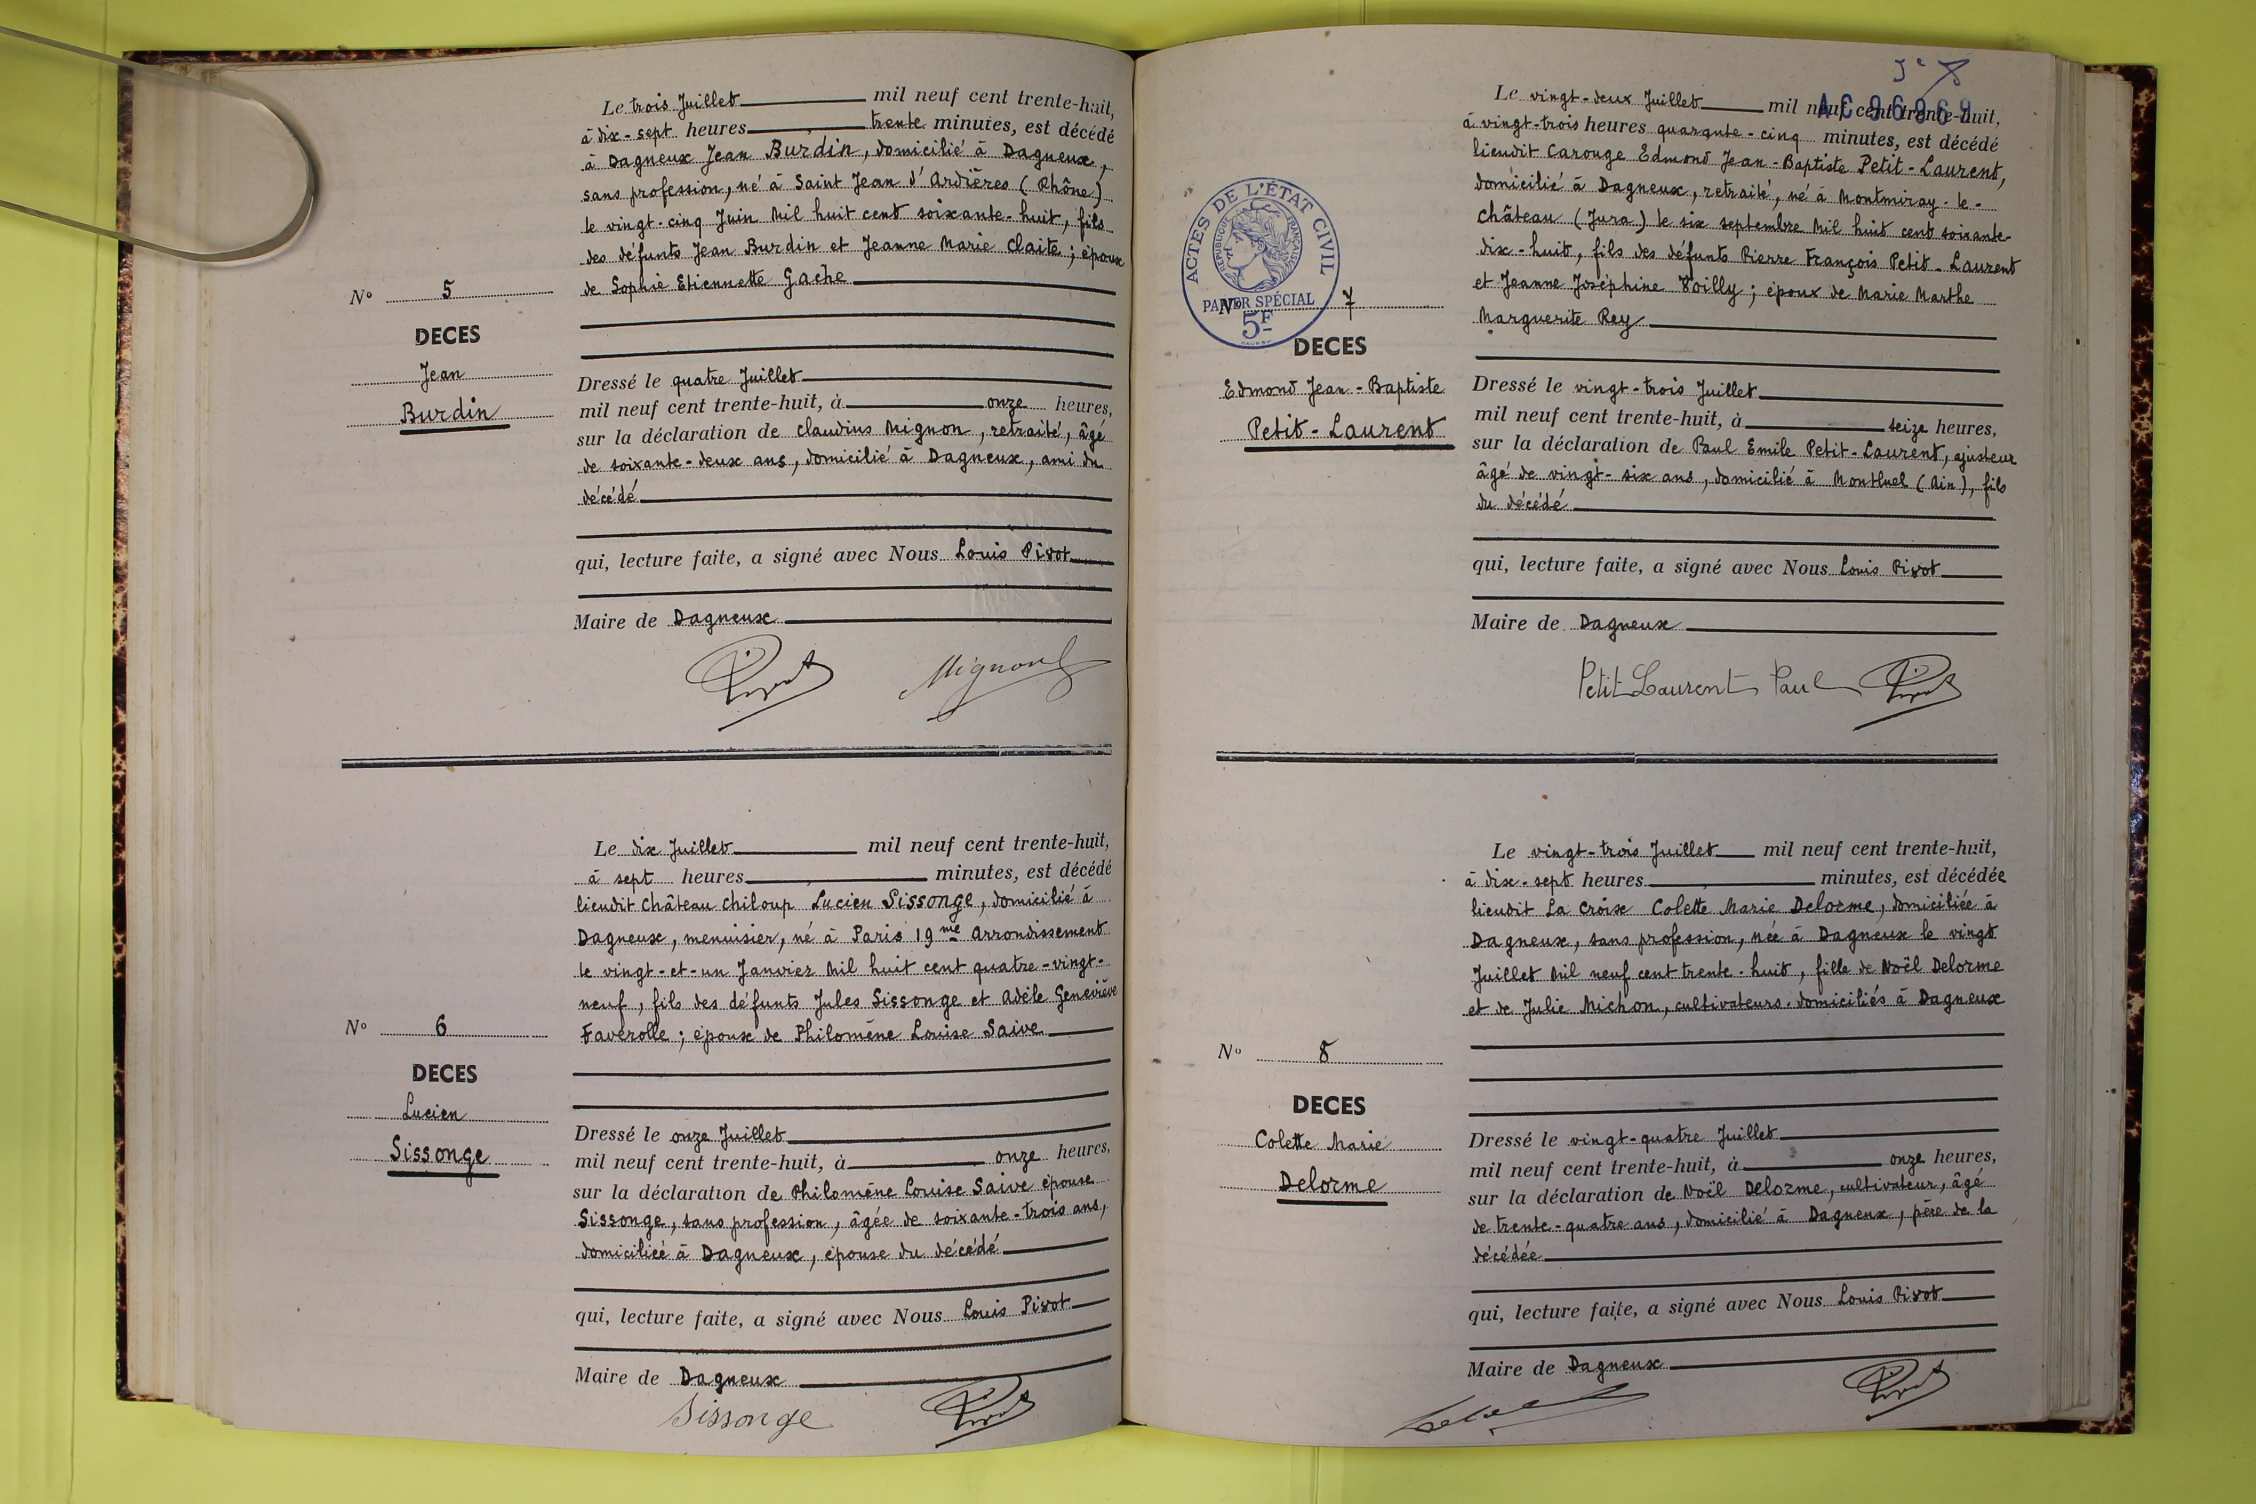 Le trois Juillet mil neuf cent trente-huit,
à dix-sept heures trente minutes, est décédé
à Dagneux Jean Burdin, domicilié à Dagneux,
sans profession, né à Saint Jean d'Ardières (Rhône)
le vingt-cinq Juin Mil huit cent soixante-huit, fils
des défunts Jean Burdin et Jeanne Marie Claite ; époux
de Sophie Etiennette Gache
N° 5
DECES
Jean
Burdin
Dressé le quatre Juillet
mil neuf cent trente-huit, à onze heures,
sur la déclaration de Claudius Mignon, retraité, âgé
de soixante-deux ans, domicilié à Dagneux, ami du
décédé
qui, lecture faite, a signé avec Nous Louis Pivot
Maire de Dagneux
Pivot Mignon
Le dix Juillet mil neuf cent trente-huit,
à sept heures minutes, est décédé
lieudit Château Chiloup Lucien Sissonge, domicilié à
Dagneux, menuisier, né à Paris 19me Arrondissement
le vingt-et-un Janvier Mil huit cent quatre-vingt-
neuf, fils des défunts Jules Sissonge et Adèle Geneviève
Faverolle ; époux de Philomène Louise Saive
N° 6
DECES
Lucien
Sissonge
Dressé le onze Juillet
mil neuf cent trente-huit, à onze heures,
sur la déclaration de Philomène Louise Saive épouse
Sissonge, sans profession, âgée de soixante-trois ans,
domiciliée à Dagneux, épouse du décédé
qui, lecture faite, a signé avec Nous Louis Pivot
Maire de Dagneux
Sissonge Pivot
Le vingt-deux Juillet mil neuf cent trente-huit,
à vingt-trois heures quarante-cinq minutes, est décédé
lieudit Carouge Edmond Jean-Baptiste Petit-Laurent,
domicilié à Dagneux, retraité, né à Montmiray-le-
Château (Jura) le six septembre Mil huit cent soixante-
dix-huit, fils des défunts Pierre François Petit-Laurent
et Jeanne Joséphine Voilly ; époux de Marie Marthe
Marguerite Rey
ACTES DE L'ÉTAT CIVIL
RÉPUBLIQUE FRANÇAISE
PAPIER SPÉCIAL
5F
N° 7
DECES
Edmond Jean-Baptiste
Petit-Laurent
Dressé le vingt-trois Juillet
mil neuf cent trente-huit, à seize heures,
sur la déclaration de Paul Emile Petit-Laurent, ajusteur
âgé de vingt-six ans, domicilié à Montluel (Ain), fils
du décédé
qui, lecture faite, a signé avec Nous Louis Pivot
Maire de Dagneux
Petit Laurent Paul Pivot
Le vingt-trois Juillet mil neuf cent trente-huit,
à dix-sept heures minutes, est décédée
lieudit La Croix Colette Marie Delorme, domiciliée à
Dagneux, sans profession, née à Dagneux le vingt
Juillet Mil neuf cent trente-huit, fille de Noël Delorme
et de Julie Michon, cultivateurs domiciliés à Dagneux
N° 8
DECES
Colette Marie
Delorme
Dressé le vingt-quatre Juillet
mil neuf cent trente-huit, à onze heures,
sur la déclaration de Noël Delorme, cultivateur, âgé
de trente-quatre ans, domicilié à Dagneux, père de la
décédée
qui, lecture faite, a signé avec Nous Louis Pivot
Maire de Dagneux
Pivot